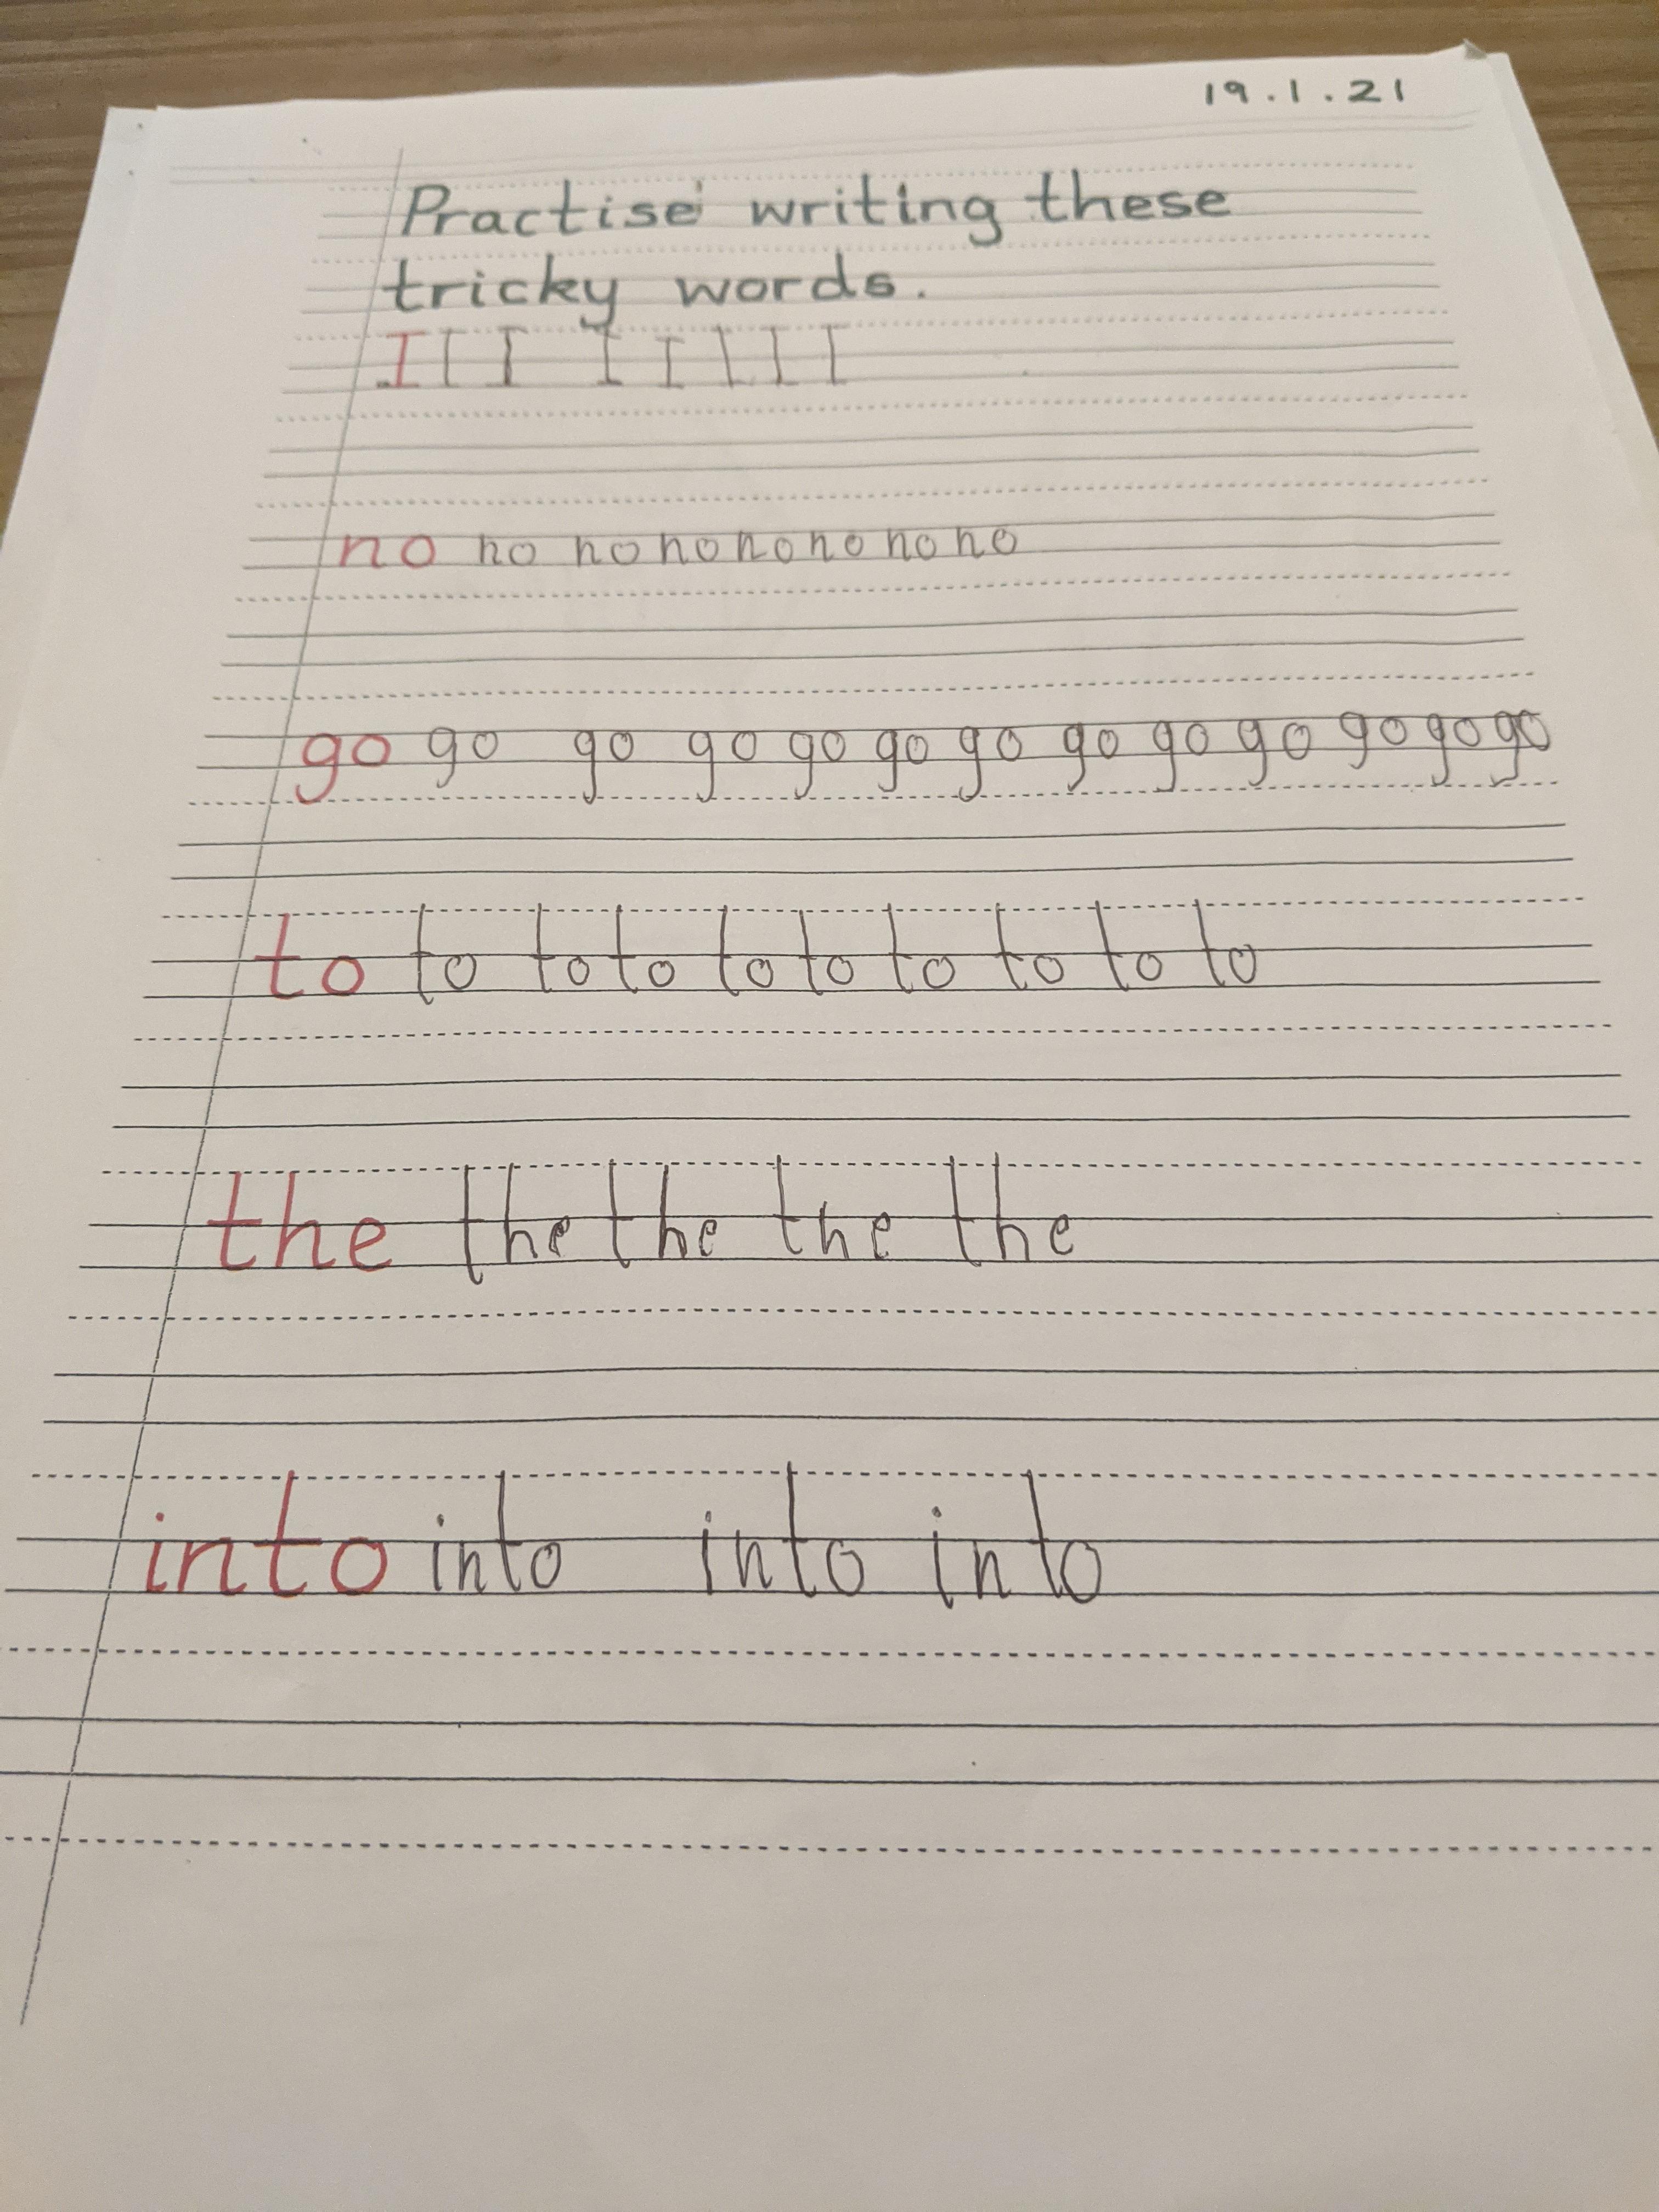 19.1.21
Practise writing these
tricky words.
I I I I I I I I
no no no no no no no no
go go go go go go go go go go go go go
to to to to to to to to to to
the the the the the
into into into into